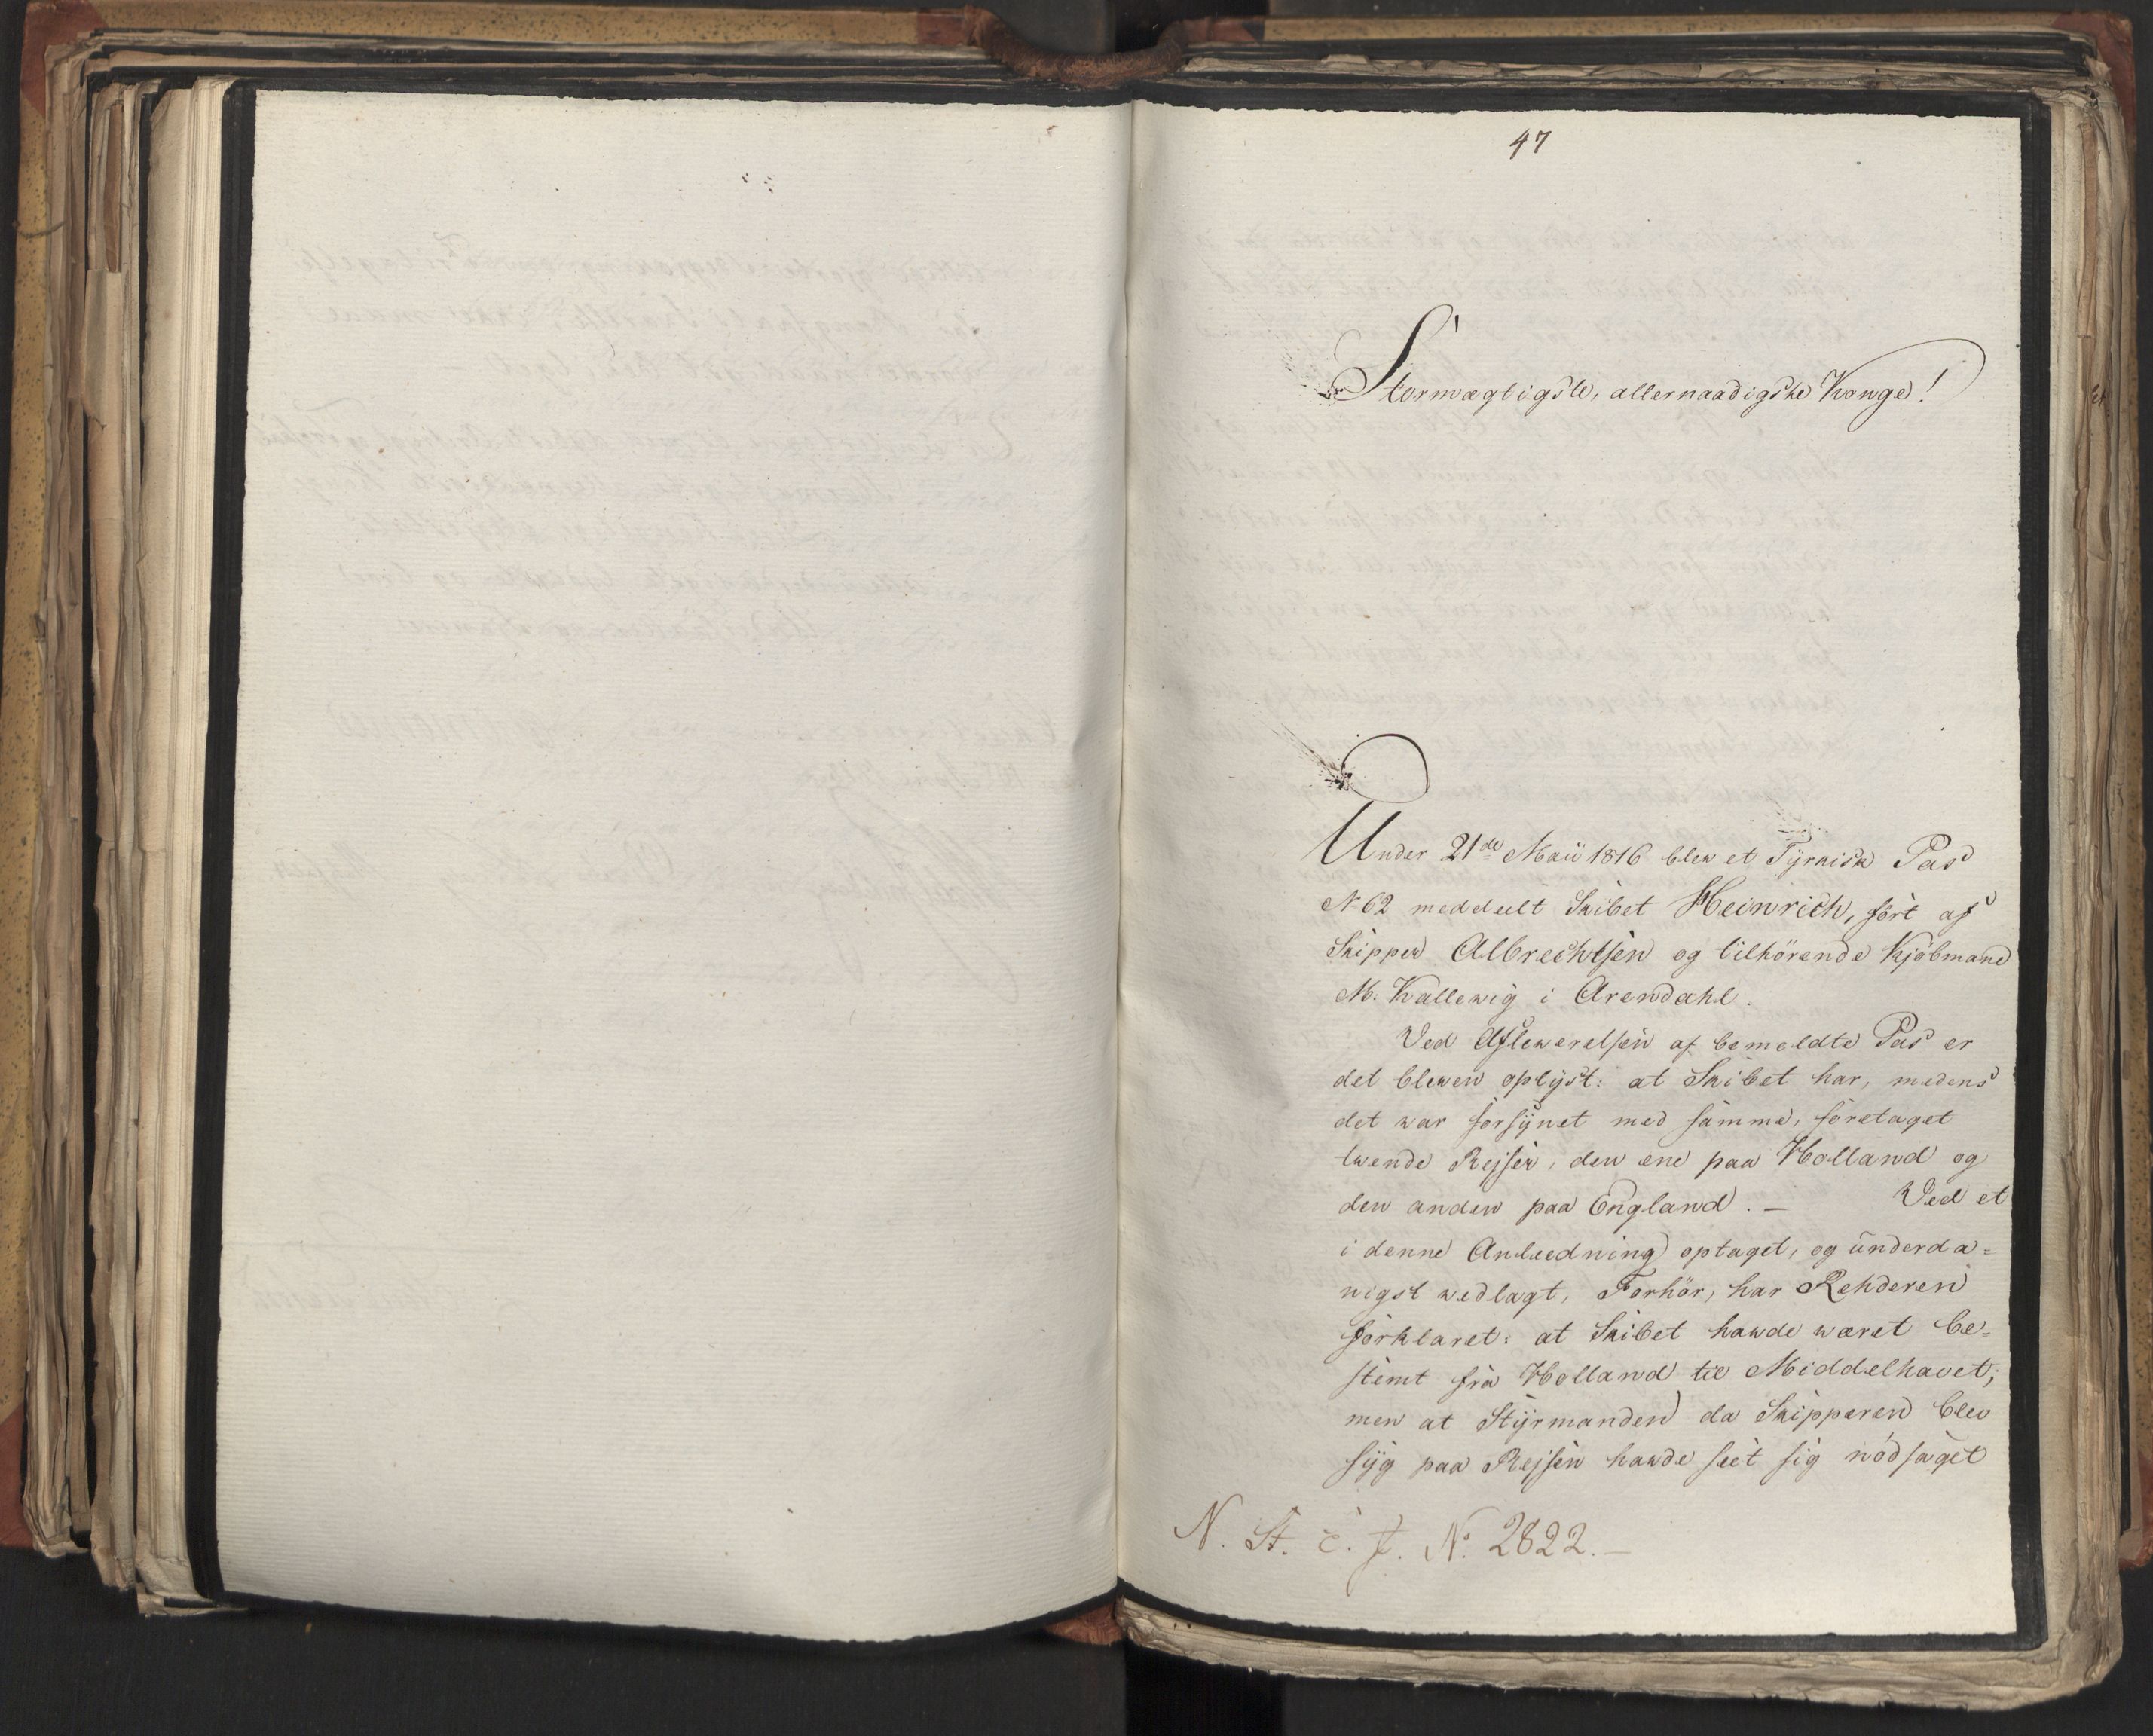 47
Stormægtigste, allernaadigste Konge!
Under 21de Maii 1816 blew et Tyrkisk Pas
No 62 meddeelt Skibet Heinrich, ført af
Skipper Albrechtsen og tilhörende Kjøbmand
M. Kallewig i Arendahl.
Ved Aflewerelsen af bemeldte Pas er
det blewen oplyst: at Skibet har, medens
det war forsynet med samme, foretaget
twende Rejser, den ene paa Holland og
den anden paa England. — Ved et
i denne Anleedning optaget, og underda=
nigst wedlagt, Forhör, har Rehderen
forklaret: at Skibet hawde wæret be=
stemt fra Holland til Middelhavet;
men at Styrmanden da Skipperen blev
syg paa Rejsen hawde seet sig nödsaget
N. St. E. J. No. 2822.—